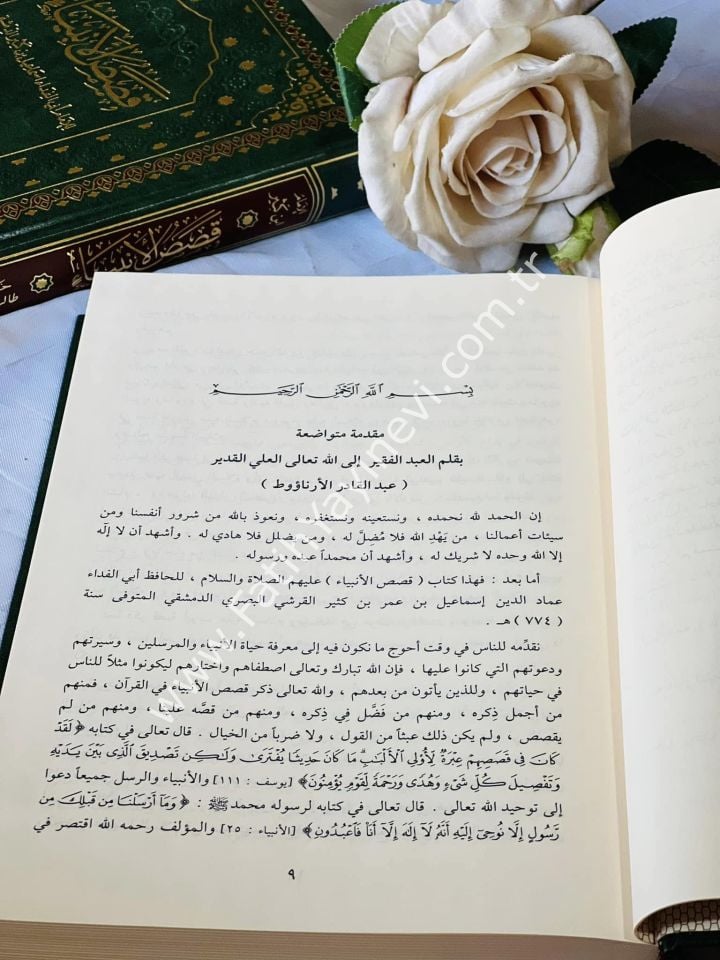 قصص الأنبياء
قصص الأنبياء
بسم الله الرحمن الرحيم
مقدمة متواضعة
بقلم العبد الفقير إلى الله تعالى العلي القدير
( عبد القادر الأرناؤوط )
إن الحمد لله نحمده ، ونستعينه ونستغفره ، ونعوذ بالله من شرور أنفسنا ومن
سيئات أعمالنا ، من يَهْدِ الله فلا مُضلَّ له ، ومن يضلل فلا هادي له . وأشهد أن لا إلٰه
إلا الله وحده لا شريك له ، وأشهد أن محمداً عبده ورسوله .
أما بعد : فهذا كتاب ( قصص الأنبياء ) عليهم الصلاة والسلام ، للحافظ أبي الفداء
عماد الدين إسماعيل بن عمر بن كثير القرشي البصري الدمشقي المتوفى سنة
( ٧٧٤ ) هـ .
نقدِّمه للناس في وقت أحوج ما نكون فيه إلى معرفة حياة الأنبياء والمرسلين ، وسيرتهم
ودعوتهم التي كانوا عليها ، فإن الله تبارك وتعالى اصطفاهم واختارهم ليكونوا مثلاً للناس
في حياتهم ، وللذين يأتون من بعدهم ، والله تعالى ذكر قصص الأنبياء في القرآن ، فمنهم
من أجمل ذِكره ، ومنهم من فَصَّل في ذِكره ، ومنهم من قصَّه علينا ، ومنهم من لم
يقصص ، ولم يكن ذلك عبثاً من القول ، ولا ضرباً من الخيال . قال تعالى في كتابه ﴿ لَقَدْ
كَانَ فِي قَصَصِهِمْ عِبْرَةٌ لِأُولِي الْأَلْبَابِ مَا كَانَ حَدِيثًا يُفْتَرَى وَلَٰكِن تَصْدِيقَ الَّذِي بَيْنَ يَدَيْهِ
وَتَفْصِيلَ كُلِّ شَيْءٍ وَهُدًى وَرَحْمَةً لِقَوْمٍ يُؤْمِنُونَ ﴾ [يوسف : ١١١] والأنبياء والرسل جميعاً دعوا
إلى توحيد الله تعالى . قال تعالى في كتابه لرسوله محمد ﷺ : ﴿ وَمَا أَرْسَلْنَا مِن قَبْلِكَ مِن
رَّسُولٍ إِلَّا نُوحِي إِلَيْهِ أَنَّهُ لَا إِلَٰهَ إِلَّا أَنَا فَاعْبُدُونِ ﴾ [الأنبياء : ٢٥] والمؤلف رحمه الله اقتصر في
٩
www.FatihYayinevi.com.tr